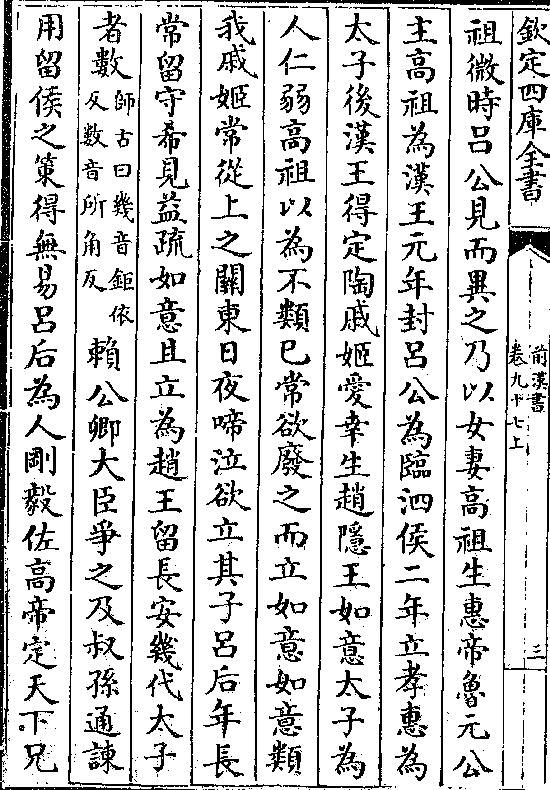 欽定四庫全書
前漢書
卷九十七上
三
祖微時呂公見而異之乃以女妻高祖生惠帝魯元公
主高祖為漢王元年封呂公為臨泗侯二年立孝惠為
太子後漢王得定陶戚姬愛幸生趙隱王如意太子為
人仁弱高祖以為不類己常欲廢之而立如意如意類
我戚姬常從上之關東日夜啼泣欲立其子呂后年長
常留守希見益疏如意且立為趙王留長安幾代太子
者數師古曰幾音鉅依反數音所角反賴公卿大臣爭之及叔孫通諫
用留侯之策得無易呂后為人剛毅佐高帝定天下兄